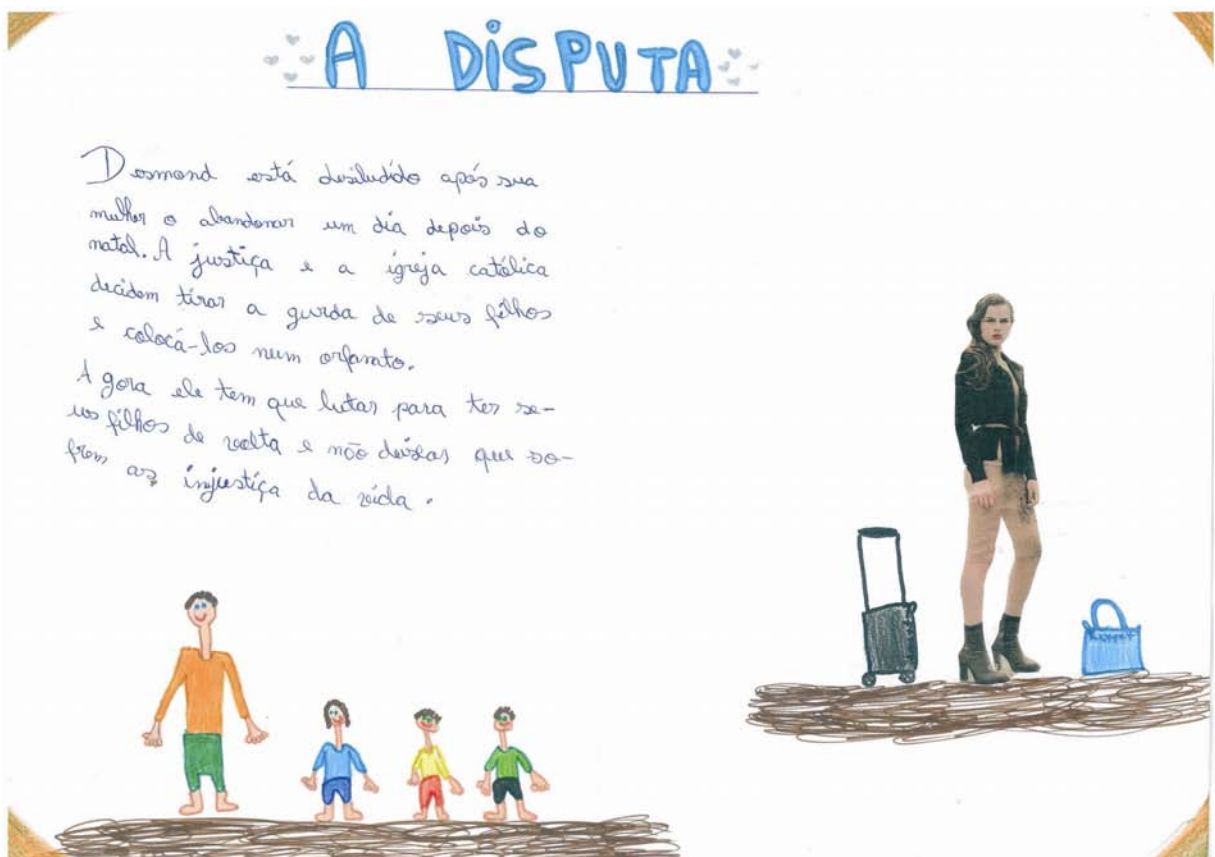 A DISPUTA
Desmond está desiludido após sua
mulher o abandonar um dia depois do
natal. A justiça e a igreja católica
decidem tirar a gurda de seus filhos
e colocá-los num orfanato.
Agora ele tem que lutar para ter se-
us filhos de volta e não deixar que so-
frem as injustiça da vida.